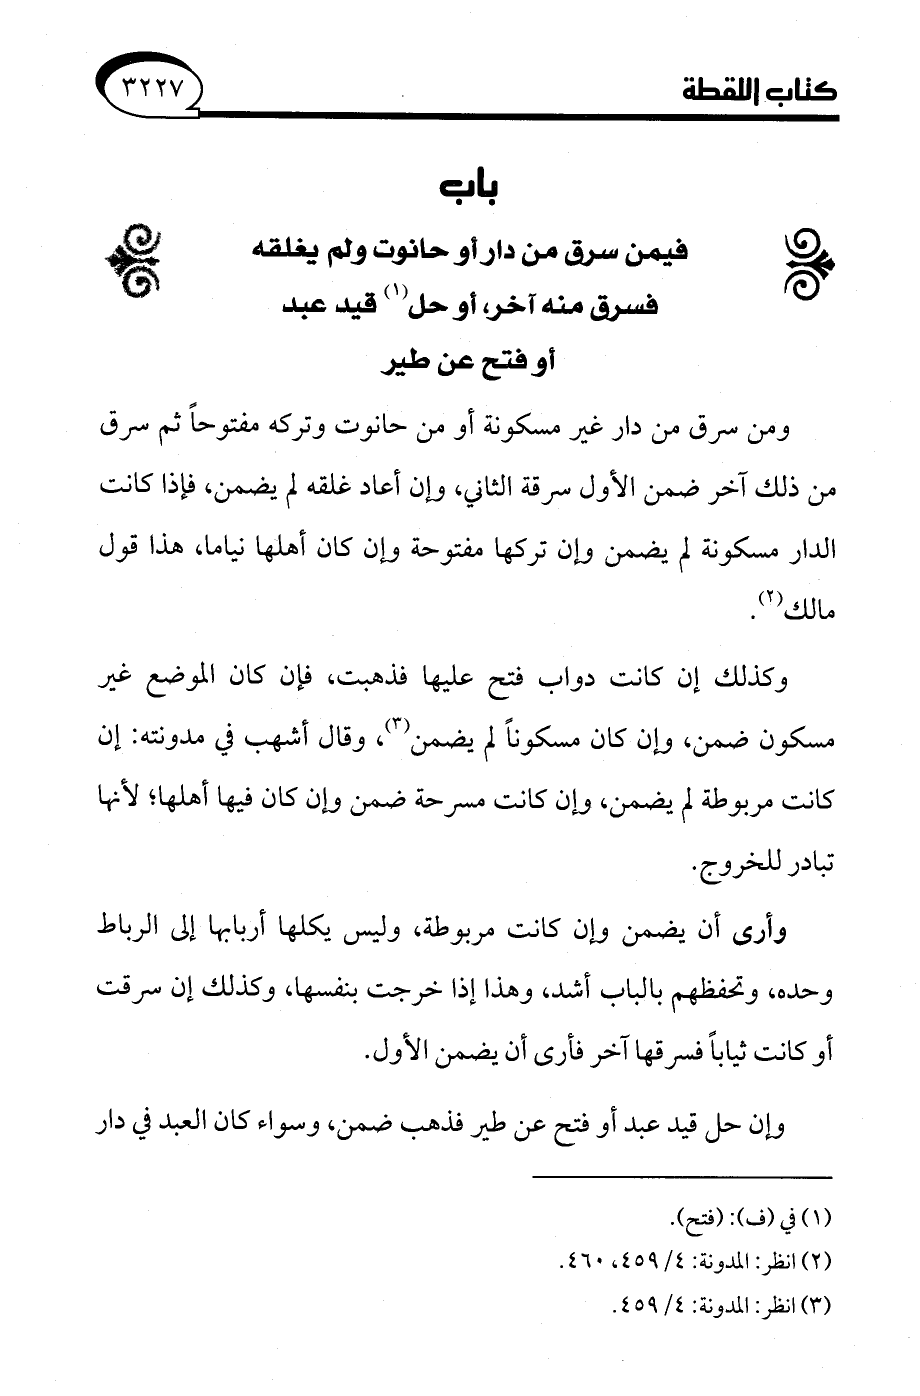 كتاب اللقطة
٣٢٢٧
باب
فيمن سرق من دار أو حانوت ولم يغلقه
فسرق منه آخر، أو حل(١) قيد عبد
أو فتح عن طير
ومن سرق من دار غير مسكونة أو من حانوت وتركه مفتوحاً ثم سرق
من ذلك آخر ضمن الأول سرقة الثاني، وإن أعاد غلقه لم يضمن، فإذا كانت
الدار مسكونة لم يضمن وإن تركها مفتوحة وإن كان أهلها نياما، هذا قول
مالك(٢).
وكذلك إن كانت دواب فتح عليها فذهبت، فإن كان الموضع غير
مسكون ضمن، وإن كان مسكوناً لم يضمن(٣)، وقال أشهب في مدونته: إن
كانت مربوطة لم يضمن، وإن كانت مسرحة ضمن وإن كان فيها أهلها؛ لأنها
تبادر للخروج.
وأرى أن يضمن وإن كانت مربوطة، وليس يكلها أربابها إلى الرباط
وحده، وتحفظهم بالباب أشد، وهذا إذا خرجت بنفسها، وكذلك إن سرقت
أو كانت ثياباً فسرقها آخر فأرى أن يضمن الأول.
وإن حل قيد عبد أو فتح عن طير فذهب ضمن، وسواء كان العبد في دار
(١) في (ف): (فتح).
(٢) انظر: المدونة: ٤/ ٤٥٩، ٤٦٠.
(٣) انظر: المدونة: ٤/ ٤٥٩.